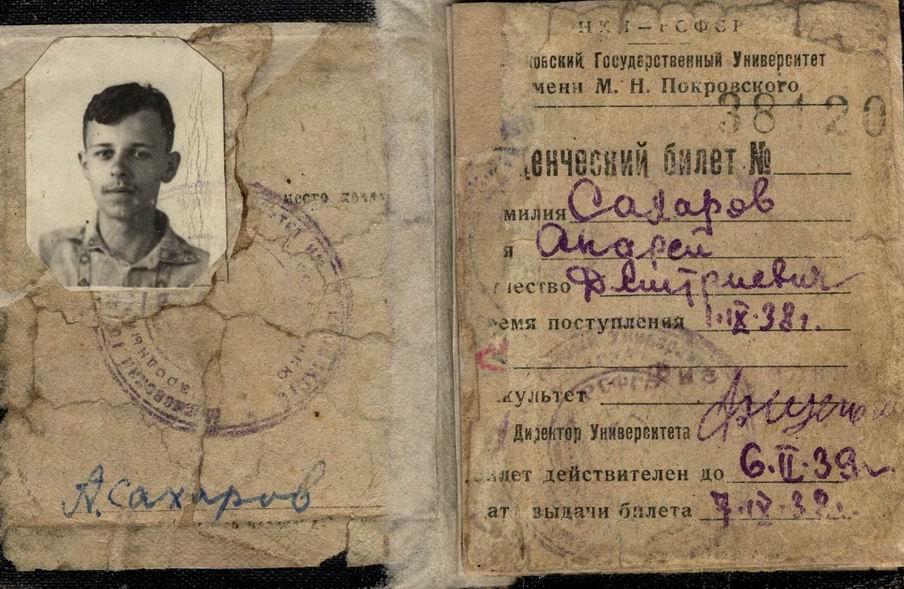 место
А. Сахаров
НКП—РСФСР
овский Государственный Университет
мени М. Н. Покровского
38120
денческий билет №
милия Сахаров
я Андрей
чество Дмитриевич
емя поступления 1.IX.38г.
культет Физ
Директор Университета
лет действителен до 6.II.39г
ат выдачи билета